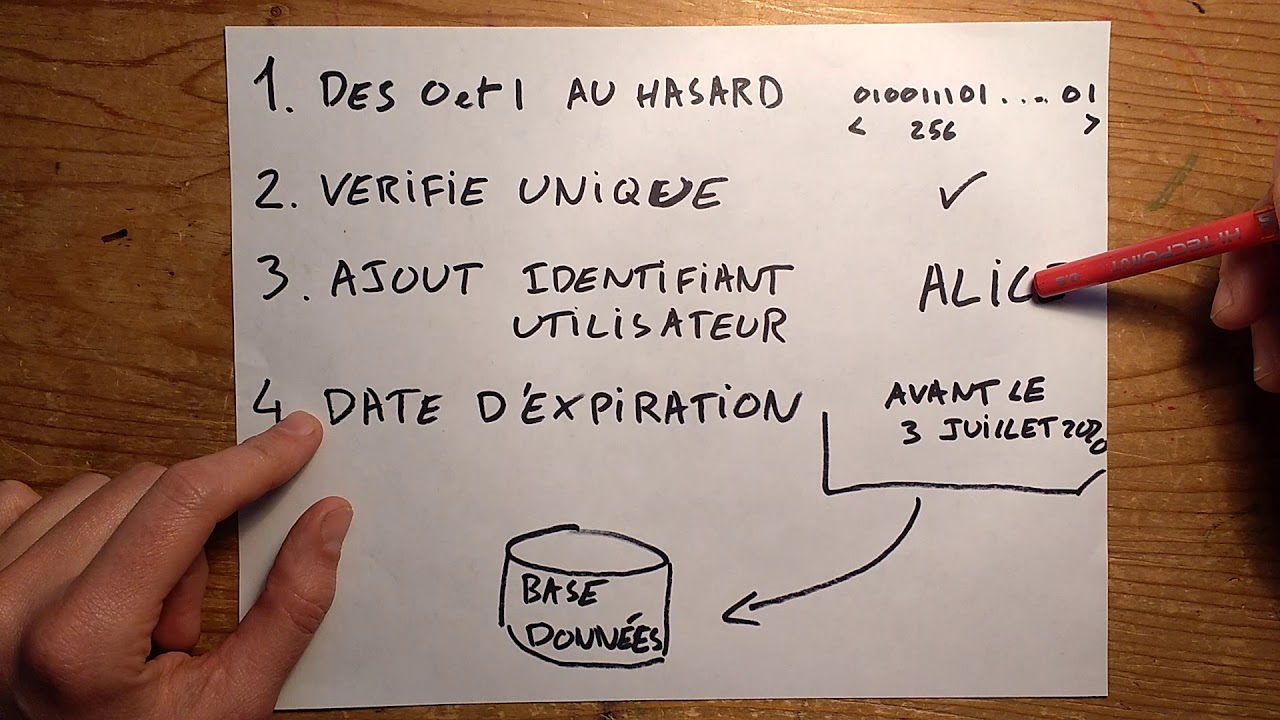 1. DES 0 et 1 AU HASARD 010011101....01
< 256 >
2. VERIFIE UNIQUE ✓
3. AJOUT IDENTIFIANT
UTILISATEUR
4 DATE D'EXPIRATION
AVANT LE
3 JUILLET 2020
BASE
DONNÉES
HI-TECPOINT